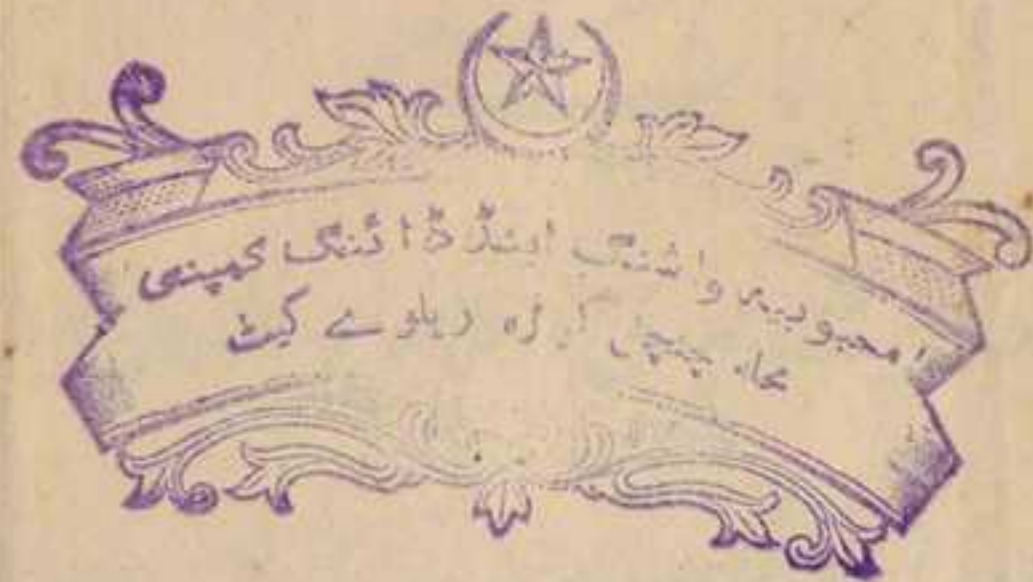 محبوبیہ واشنگ اینڈ ڈائننگ کمپنی
محلہ ریلوے گیٹ